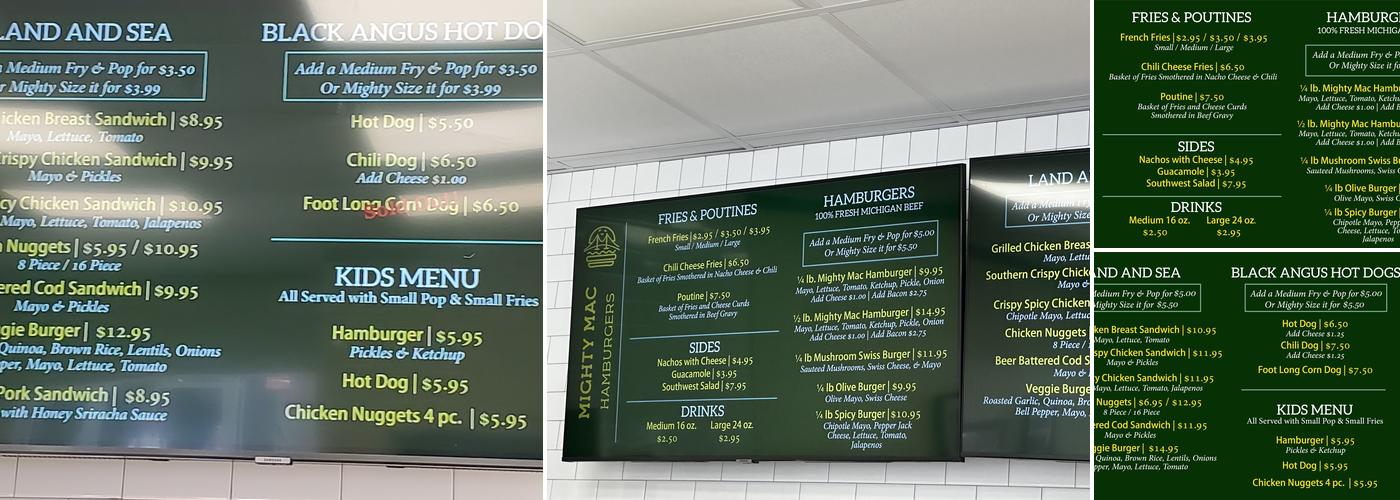 LAND AND SEA
Medium Fry & Pop for $3.50
Mighty Size it for $3.99
Breast Sandwich | $8.95
Mayo, Lettuce, Tomato
Chicken Sandwich | $9.95
Mayo & Pickles
Chicken Sandwich | $10.95
Mayo, Lettuce, Tomato, Jalapenos
Nuggets | $5.95 / $10.95
8 Piece / 16 Piece
Cod Sandwich | $9.95
Mayo & Pickles
Burger | $12.95
Quinoa, Brown Rice, Lentils, Onions
Mayo, Lettuce, Tomato
Pork Sandwich | $8.95
with Honey Sriracha Sauce
BLACK ANGUS HOT DO
Add a Medium Fry & Pop for $3.50
Or Mighty Size it for $3.99
Hot Dog | $5.50
Chili Dog | $6.50
Add Cheese $1.00
Foot Long Corn Dog | $6.50
KIDS MENU
All Served with Small Pop & Small Fries
Hamburger | $5.95
Pickles & Ketchup
Hot Dog | $5.95
Chicken Nuggets 4 pc. | $5.95
MIGHTY MAC
HAMBURGERS
FRIES & POUTINES
French Fries | $2.95 / $3.50 / $3.95
Small / Medium / Large
Chili Cheese Fries | $6.50
Basket of Fries Smothered in Nacho Cheese & Chili
Poutine | $7.50
Basket of Fries and Cheese Curds
Smothered in Beef Gravy
SIDES
Nachos with Cheese | $4.95
Guacamole | $3.95
Southwest Salad | $7.95
DRINKS
Medium 16 oz. Large 24 oz.
$2.50 $2.95
HAMBURGERS
100% FRESH MICHIGAN BEEF
Add a Medium Fry & Pop for $5.00
Or Mighty Size it for $5.50
¼ lb. Mighty Mac Hamburger | $9.95
Mayo, Lettuce, Tomato, Ketchup, Pickle, Onion
Add Cheese $1.00 | Add Bacon $2.75
½ lb. Mighty Mac Hamburger | $14.95
Mayo, Lettuce, Tomato, Ketchup, Pickle, Onion
Add Cheese $1.00 | Add Bacon $2.75
¼ lb Mushroom Swiss Burger | $11.95
Sauteed Mushrooms, Swiss Cheese, & Mayo
¼ lb Olive Burger | $9.95
Olive Mayo, Swiss Cheese
¼ lb Spicy Burger | $10.95
Chipotle Mayo, Pepper Jack
Cheese, Lettuce, Tomato,
Jalapenos
LAND A
Add a Medium
Or Mighty Siz
Grilled Chicken Breas
Mayo, Lettuce
Southern Crispy Chick
Mayo
Crispy Spicy Chicken
Chipotle Mayo, Lettuc
Chicken Nuggets
8 Piece /
Beer Battered Cod S
Mayo
Veggie Burge
Roasted Garlic, Quinoa, Bro
Bell Pepper, Mayo,
FRIES & POUTINES
French Fries | $2.95 / $3.50 / $3.95
Small / Medium / Large
Chili Cheese Fries | $6.50
Basket of Fries Smothered in Nacho Cheese & Chili
Poutine | $7.50
Basket of Fries and Cheese Curds
Smothered in Beef Gravy
SIDES
Nachos with Cheese | $4.95
Guacamole | $3.95
Southwest Salad | $7.95
DRINKS
Medium 16 oz. Large 24 oz.
$2.50 $2.95
HAMBURG
100% FRESH MICHIGA
Add a Medium Fry
Or Mighty Size
¼ lb. Mighty Mac Hambu
Mayo, Lettuce, Tomato, Ketchu
Add Cheese $1.00 | Add B
½ lb. Mighty Mac Hambu
Mayo, Lettuce, Tomato, Ketchu
Add Cheese $1.00 | Add B
¼ lb Mushroom Swiss B
Sauteed Mushrooms, Swiss C
¼ lb Olive Burger |
Olive Mayo, Swiss C
¼ lb Spicy Burger |
Chipotle Mayo, Pep
Cheese, Lettuce, To
Jalapeno
AND AND SEA
Medium Fry & Pop for $5.00
Mighty Size it for $5.50
ken Breast Sandwich | $10.95
Mayo, Lettuce, Tomato
spy Chicken Sandwich | $11.95
Mayo & Pickles
y Chicken Sandwich | $11.95
Mayo, Lettuce, Tomato, Jalapenos
Nuggets | $6.95 / $12.95
8 Piece / 16 Piece
ered Cod Sandwich | $11.95
Mayo & Pickles
gie Burger | $14.95
Quinoa, Brown Rice, Lentils, Onions
pper, Mayo, Lettuce, Tomato
BLACK ANGUS HOT DOGS
Add a Medium Fry & Pop for $5.00
Or Mighty Size it for $5.50
Hot Dog | $6.50
Add Cheese $1.25
Chili Dog | $7.50
Add Cheese $1.25
Foot Long Corn Dog | $7.50
KIDS MENU
All Served with Small Pop & Small Fries
Hamburger | $5.95
Pickles & Ketchup
Hot Dog | $5.95
Chicken Nuggets 4 pc. | $5.95